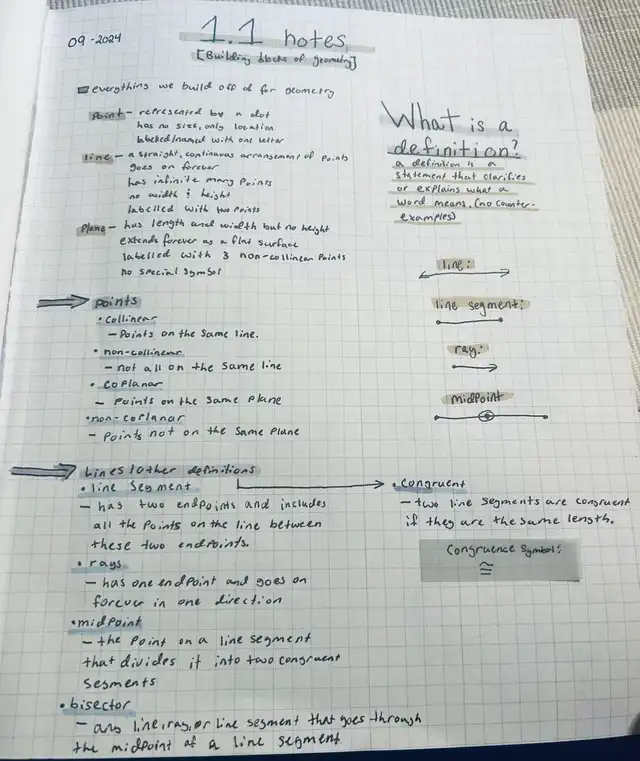 09-2024
1.1 notes
[Building blocks of geometry]
everything we build off of for geometry
Point - represented by a dot
has no size, only location
labelled/named with one letter
line - a straight, continuous arrangement of points
goes on forever
has infinite many points
no width & height
labelled with two points
Plane - has length and width but no height
extends forever as a flat surface
labelled with 3 non-collinear points
no special symbol
What is a
definition?
a definition is a
statement that clarifies
or explains what a
word means. (no counter-
examples)
line:
line segment:
ray:
midpoint
Points
• collinear
- Points on the same line.
• non-collinear
- not all on the same line
• coplanar
- points on the same plane
• non-coplanar
- points not on the same plane
Lines/other definitions
• line segment
- has two endpoints and includes
all the points on the line between
these two endpoints.
• rays
- has one endpoint and goes on
forever in one direction
• midpoint
- the point on a line segment
that divides it into two congruent
segments
• bisector
- any line, ray, or line segment that goes through
the midpoint of a line segment
• congruent
- two line segments are congruent
if they are the same length.
Congruence symbol:
≅